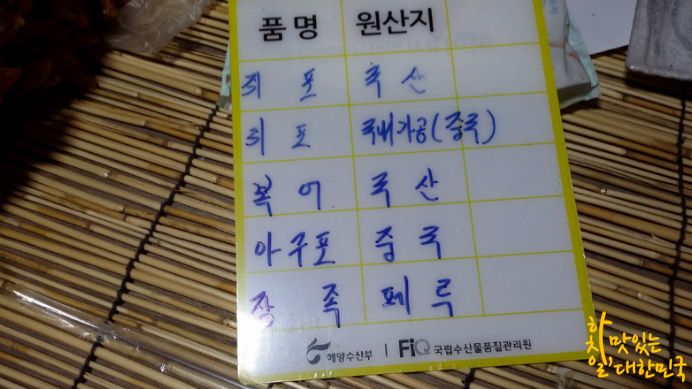 품명 원산지
쥐 포 국 산
쥐 포 국내가공(중국)
복 어 국 산
아구포 중 국
장 족 페 루
해양수산부 | FiQ 국립수산물품질관리원
하지만 맛있는
일 대한민국